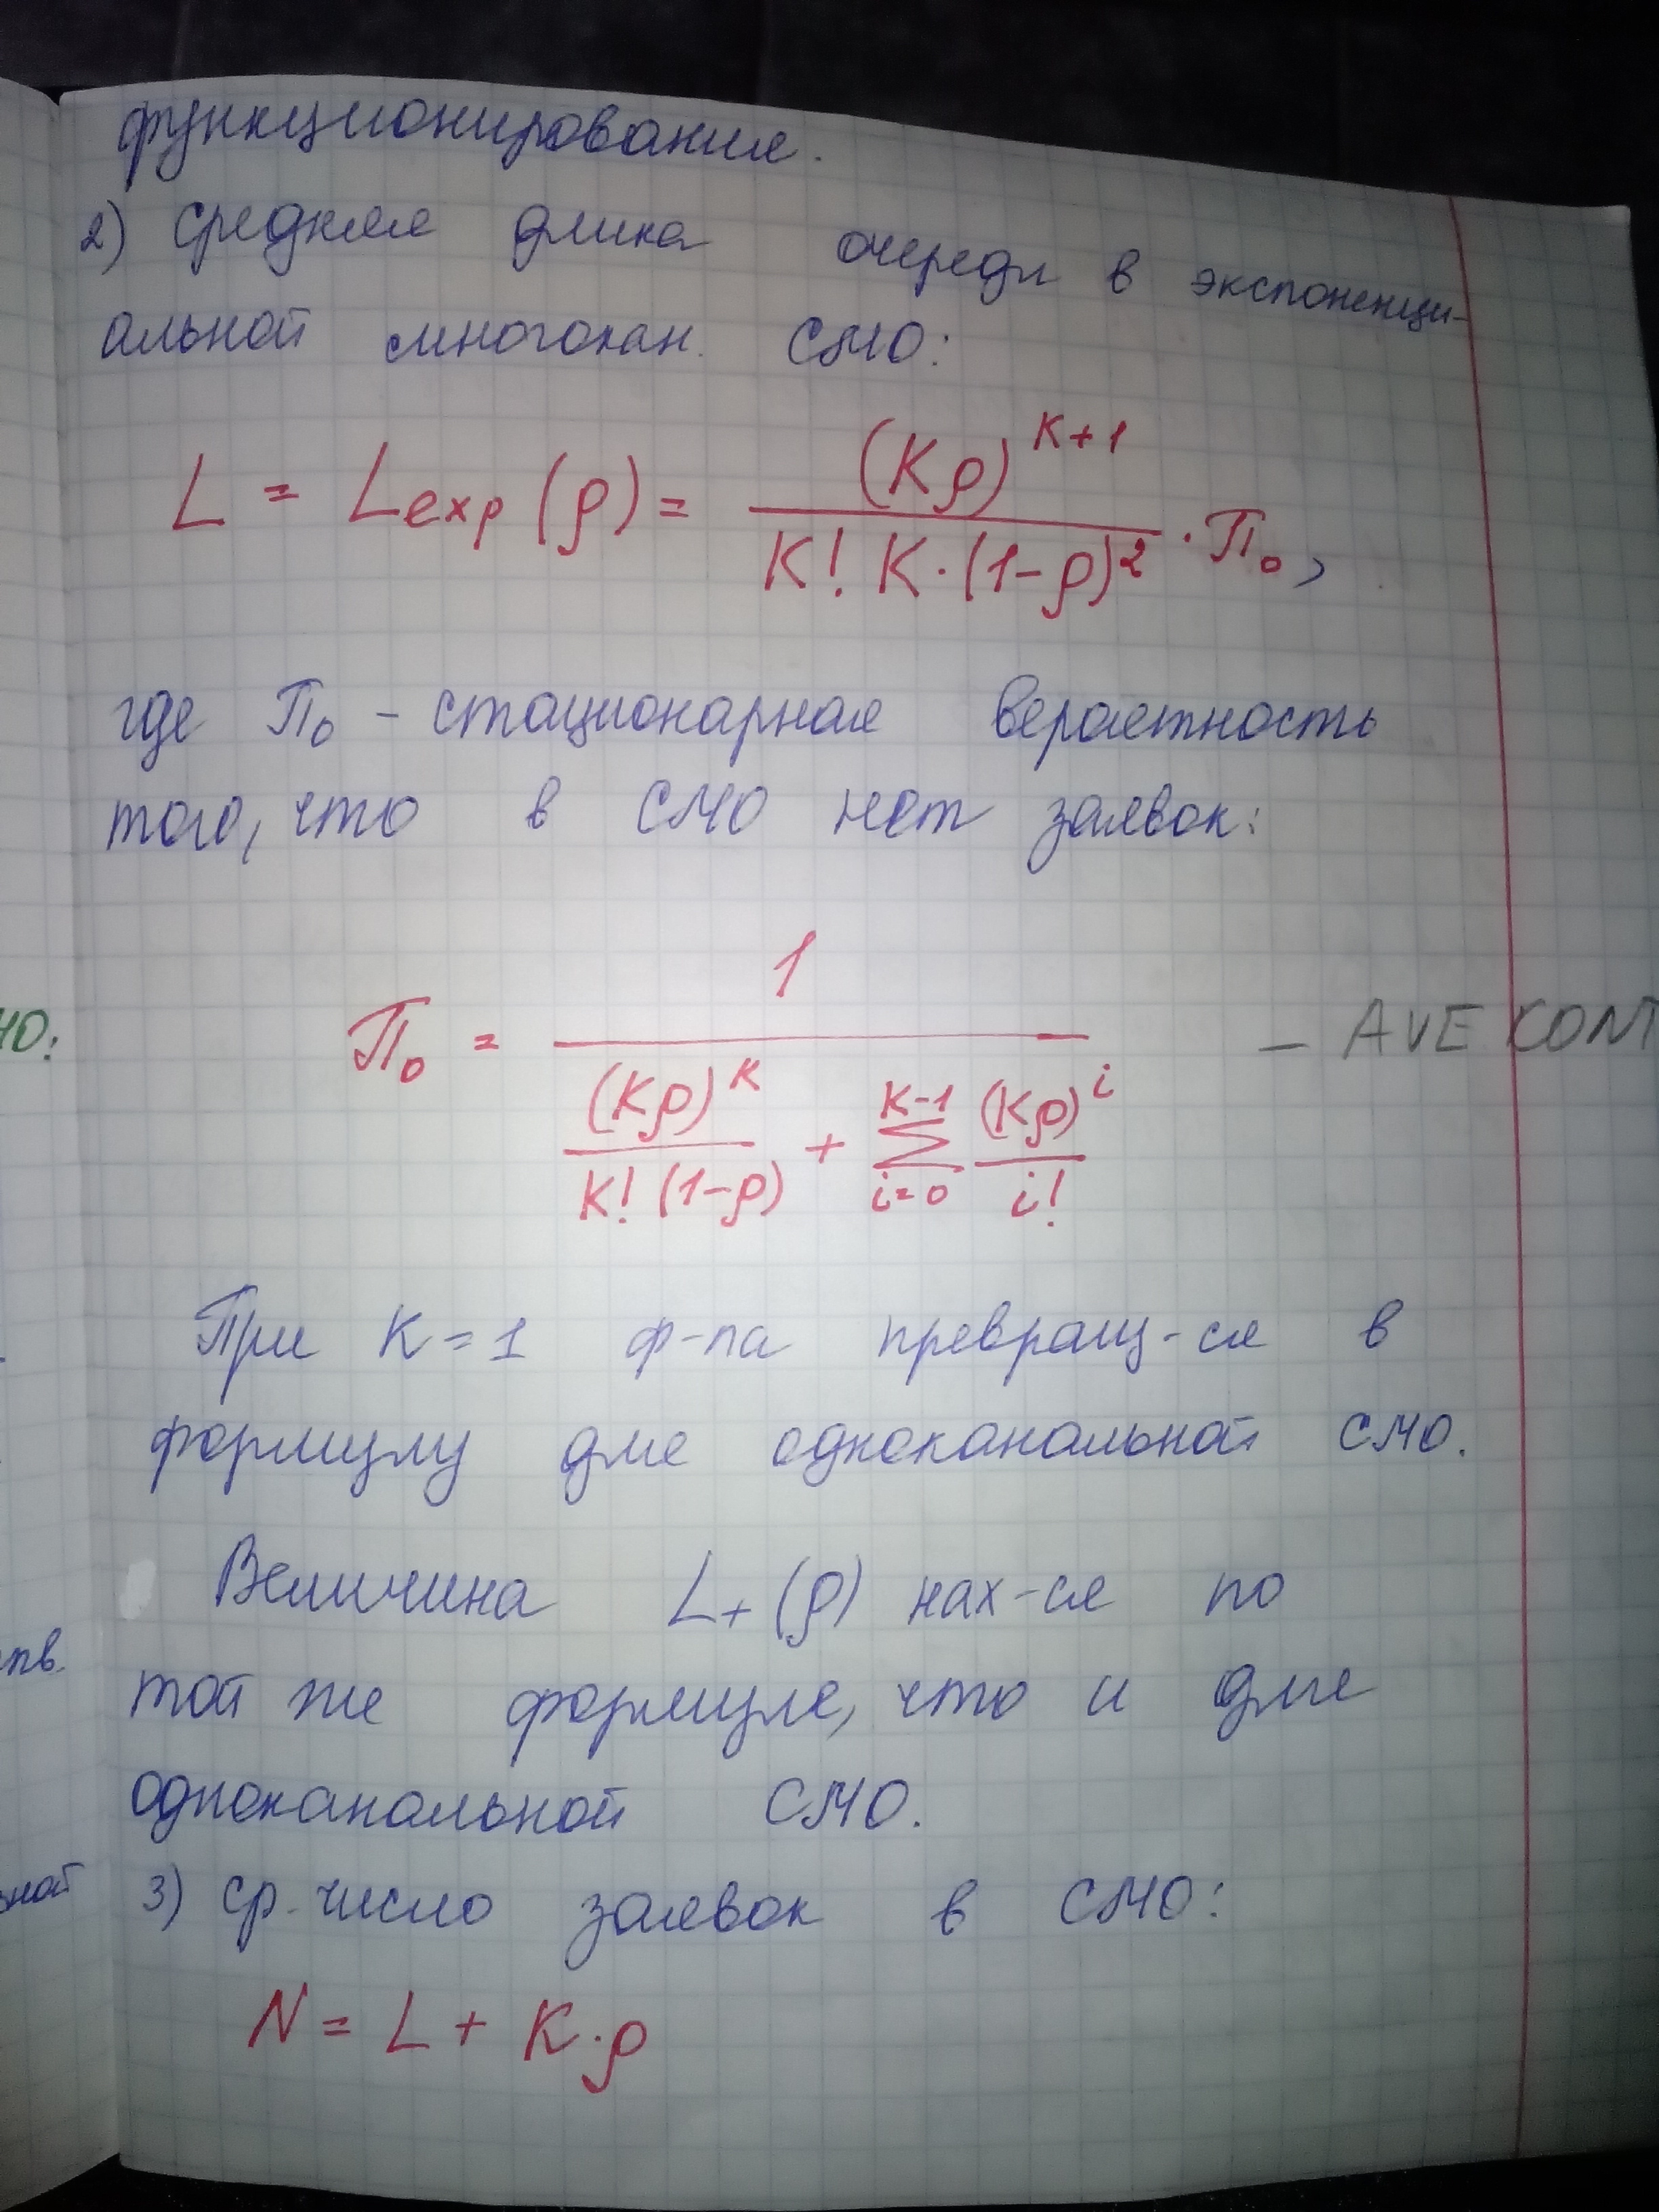 функционирования.
2) средняя длина очереди в экспоненци-
альной многокан. СМО:
L = Lexp (ρ) = (Kρ)^(K+1) / (K! K·(1-ρ)^2) · П₀,
где П₀ - стационарная вероятность
того, что в СМО нет заявок:
П₀ = 1 / ((Kρ)^K / (K! (1-ρ)) + Σ_{i=0}^{K-1} (Kρ)^i / i!) – AVE CONT
При K=1 ф-ла превращ-ся в
формулу для одноканальной СМО.
Величина L+(ρ) нах-ся по
той же формуле, что и для
одноканальной СМО.
3) ср. число заявок в СМО:
N = L + K·ρ